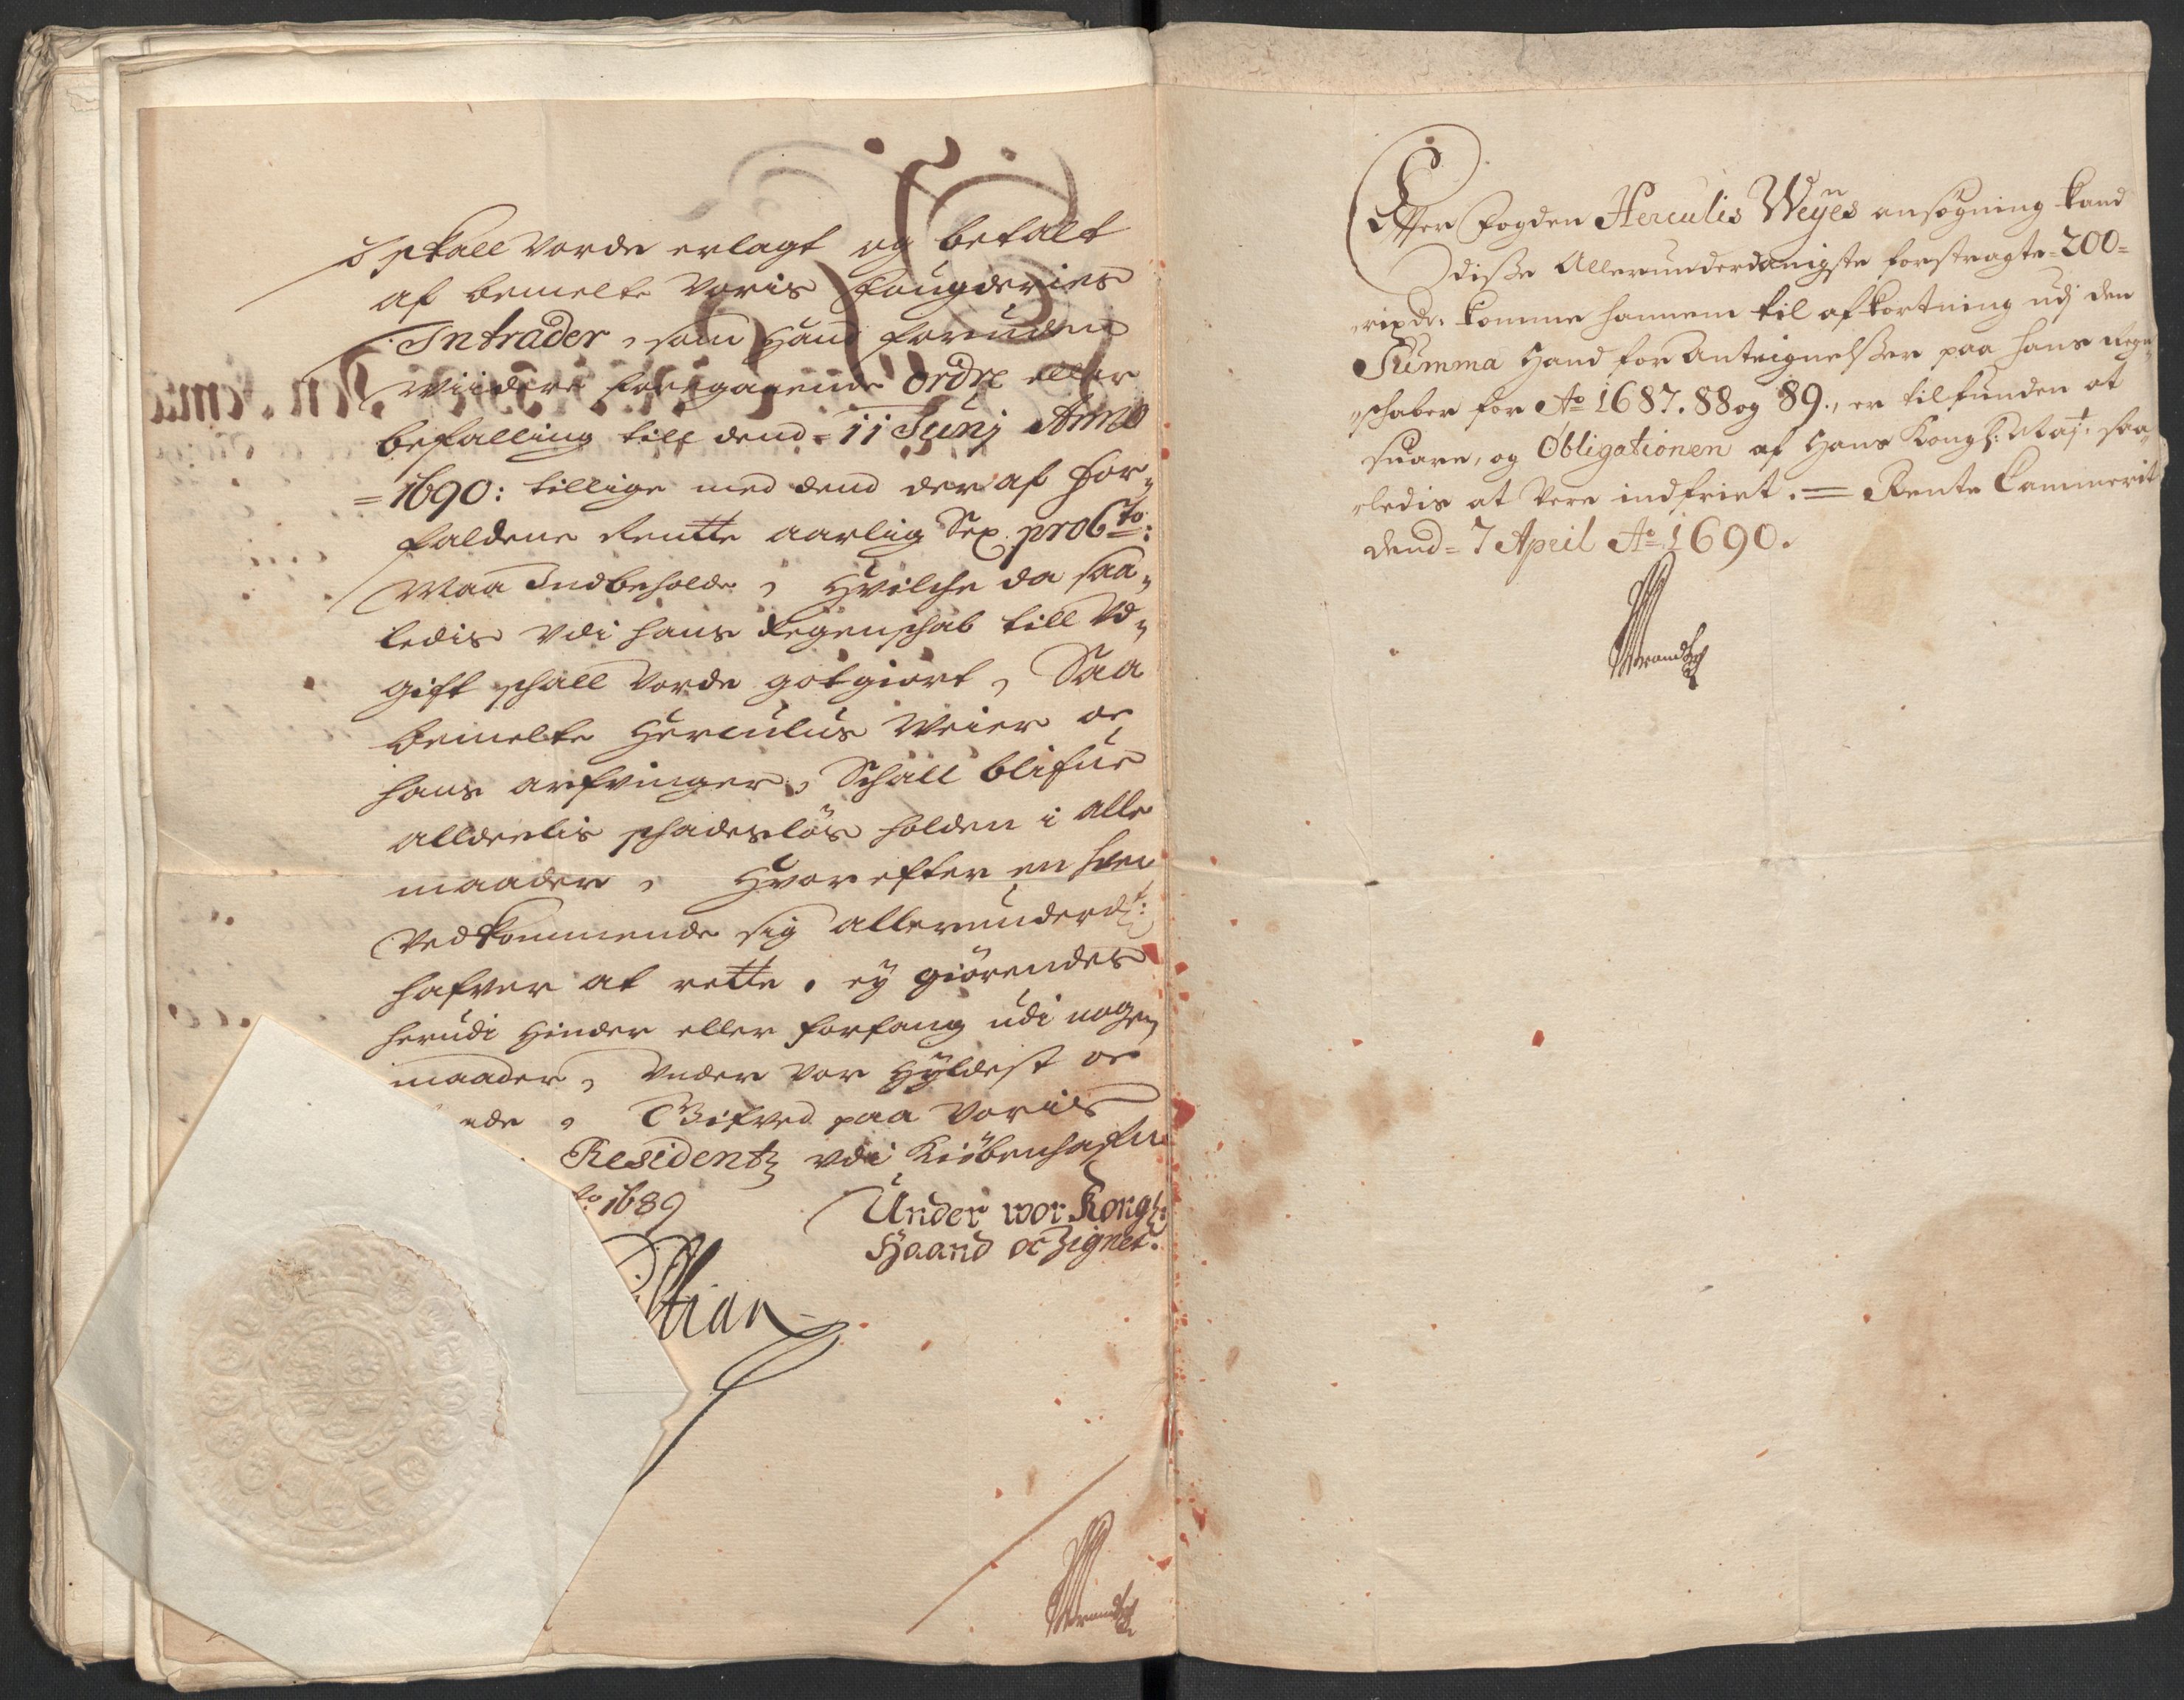 skall vorde erlagt og betalt
af bemelte Voris Fougderies
Intrader, som hand foruden
Wiidere foregaaende Ordre eller
befalling till dend = 11 Junj Anno
= 1690: tillige med dend der af for„
faldene Rentte aarlig Sex pro Cto:
Maa Indbeholde, hvilche da saa„
ledis Vdi hans Regenschab till Vd„
gift schall vorde gotgiort, Saa
bemelte Herculus Weier oc
hans arfvinger, Schall blifue
alldeelis schadesløs holden i alle
maader, Hvorefter en hver
Vedkommende sig allerunderdt:
hafver at rette. eÿ giörendes
herudi Hinder eller forfang udi nogen
maader, Under vor Hÿldest oc
ade, Gifved paa Voriis
Residentz vdi Kiöbenhafn
1689
Under wor Kongl:
Haand oc Zignet.
istian
Efter Fogden Herculis Weÿes ansøgning kand
disse Allerunderdanigste forstragte = 200 =
rixdr. komme hannem til afkortning udj den
Summa Hand for Anteignelsser paa hans Regn„
„schaber for Ao 1687. 88 og 89., er tilfunden at
suare, og Obligationen af Hans Kongl: Mayt: saa„
„ledis at vere indfriet. = Rente Cammerit
dend = 7 April Ao 1690.